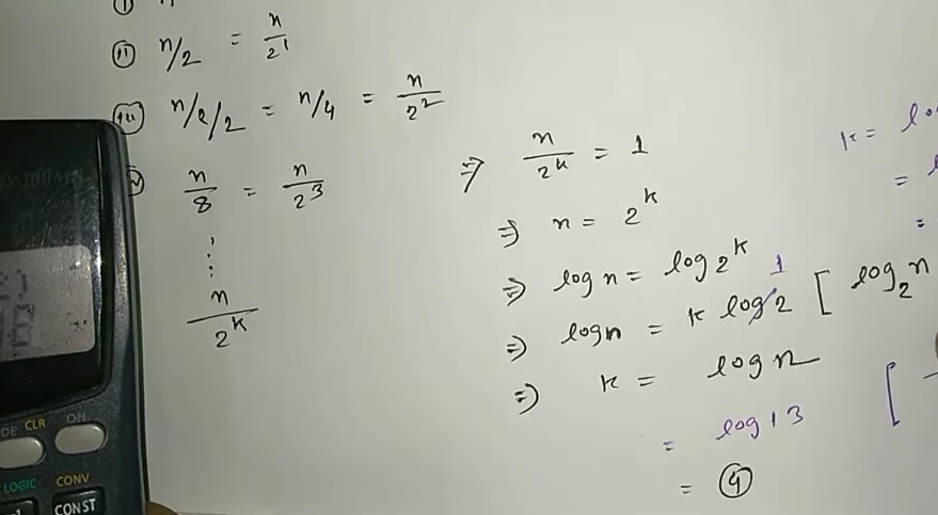 (ii) n/2 = n/2^1
n/2/2 = n/4 = n/2^2
n/8 = n/2^3
⋮
n/2^k
⇒ n/2^k = 1
⇒ n = 2^k
⇒ log n = log 2^k
⇒ log n = k log 2 1 [ log_2 n
⇒ k = log n
= log 13 [
= 4
k = lo
=
=
CLR ON
LOGIC CONV
CONST